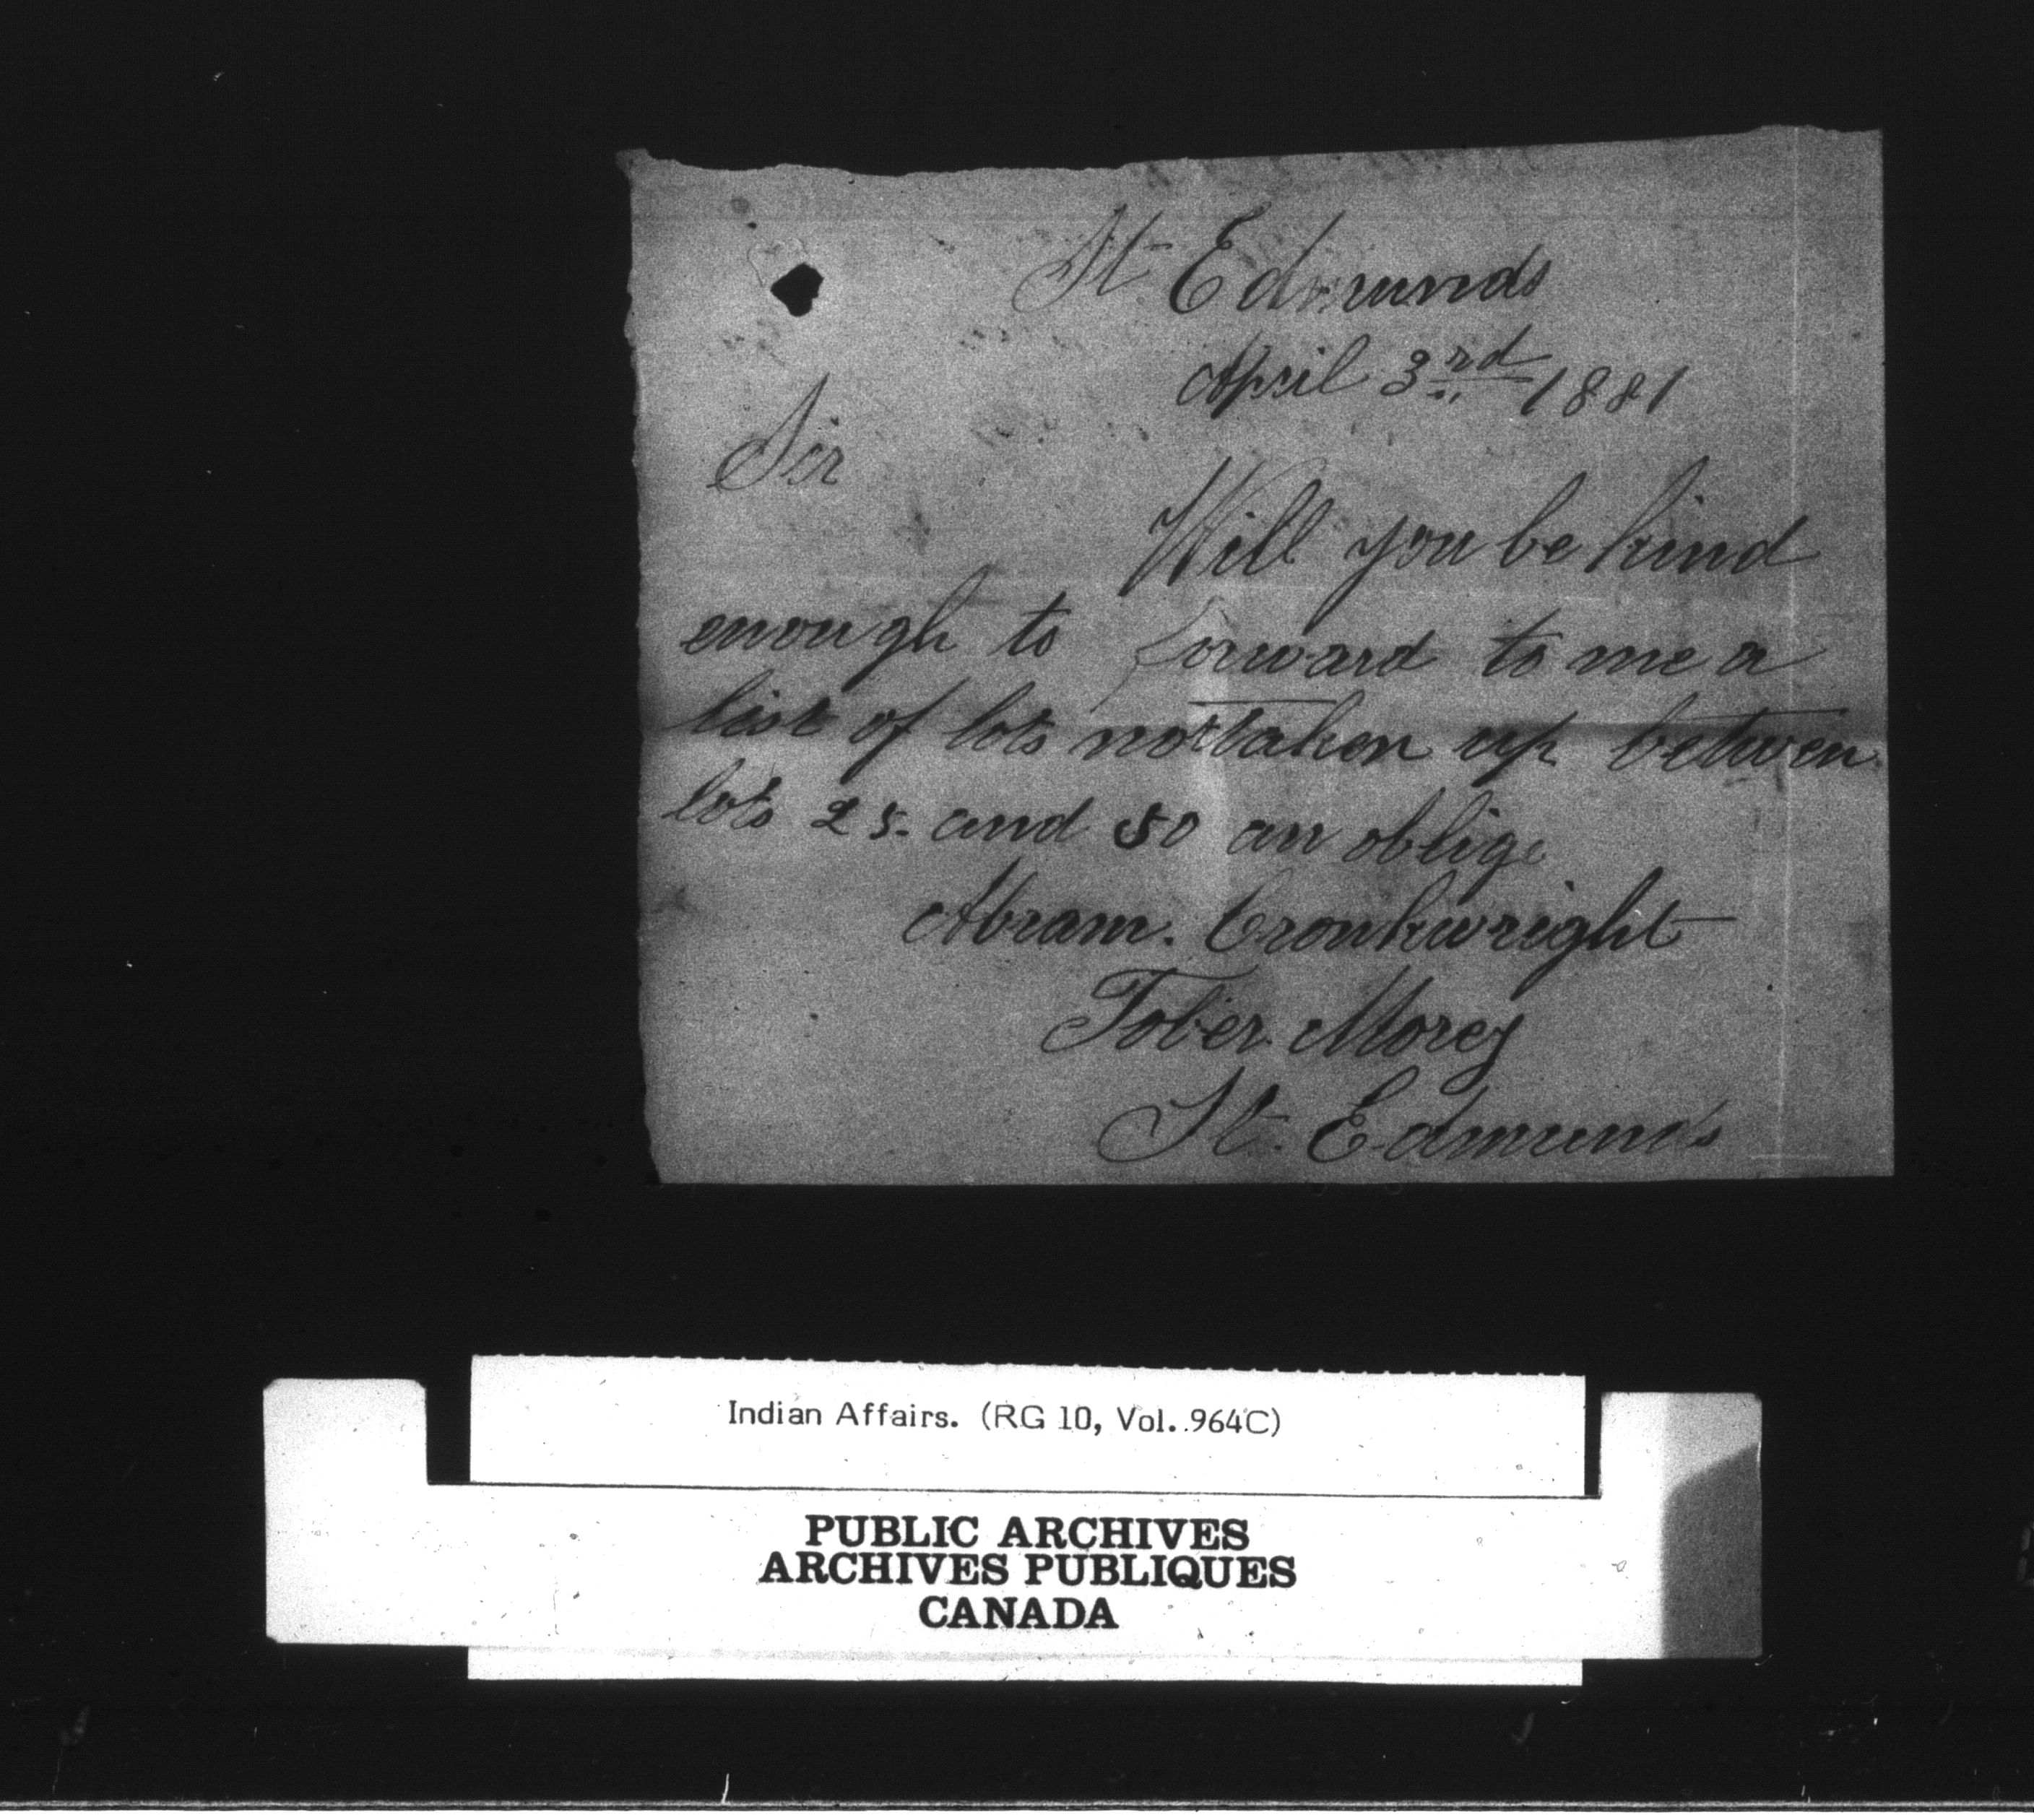 St Edmunds
April 3rd 1881
Sir
Will you be kind
enough to forward to me a
list of lots not taken up between
lots 25 and 50 an oblige
Abram. Cronkwright
Tober Morey
St. Edmunds
Indian Affairs. (RG 10, Vol. 964C)
PUBLIC ARCHIVES
ARCHIVES PUBLIQUES
CANADA